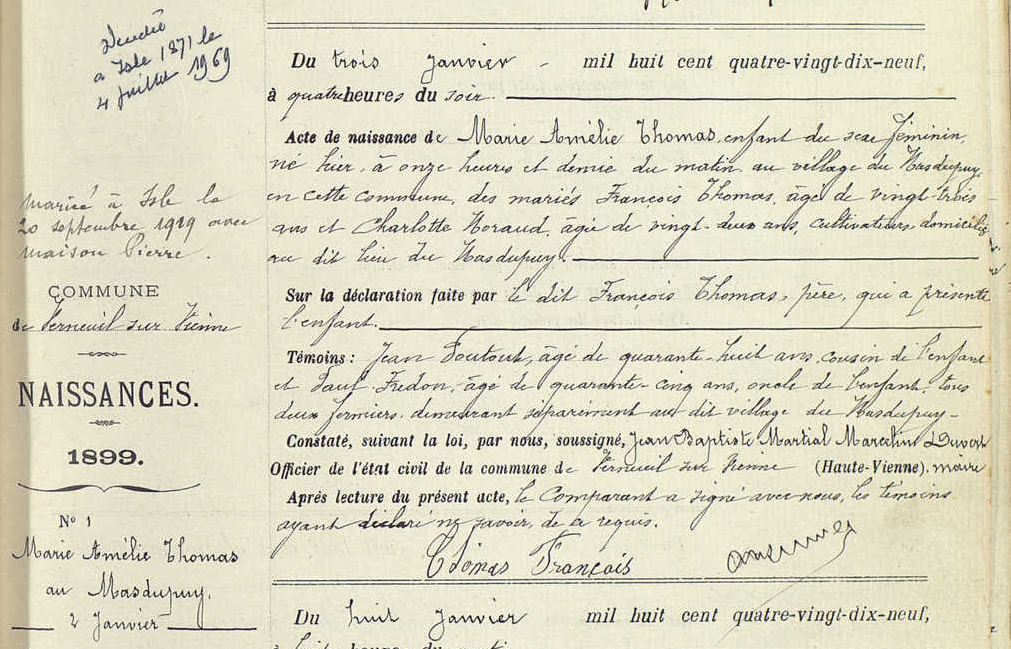 Décédée
à Isle 1871 le
4 juillet 1969
mariée à Isle le
20 septembre 1919 avec
maison Pierre.
COMMUNE
de Verneuil sur Vienne
NAISSANCES.
1899.
N° 1
Marie Amélie Thomas
au Masdupuy.
2 Janvier
Du trois Janvier - mil huit cent quatre-vingt-dix-neuf,
à quatre heures du soir.
Acte de naissance de Marie Amélie Thomas, enfant du sexe féminin,
né hier, à onze heures et demie du matin, au village du Masdupuy,
en cette commune, des mariés François Thomas, âgé de vingt-trois
ans et Charlotte Moraud, âgée de vingt-deux ans, cultivateurs, domiciliés
au dit lieu du Masdupuy.
Sur la déclaration faite par le dit François Thomas, père, qui a présenté
l'enfant.
Témoins : Jean Toutout, âgé de quarante-huit ans, cousin de l'enfant
et Paul Fredon, âgé de quarante-cinq ans, oncle de l'enfant, tous
deux fermiers, demeurant séparément au dit village du Masdupuy-
Constaté, suivant la loi, par nous, soussigné, Jean Baptiste Martial Marcelin Duvert
Officier de l'état civil de la commune de Verneuil sur Vienne (Haute-Vienne). maire
Après lecture du présent acte, le Comparant a signé avec nous, les témoins
ayant déclaré ne savoir, de ce requis.
Thomas François
Du huit Janvier mil huit cent quatre-vingt-dix-neuf,